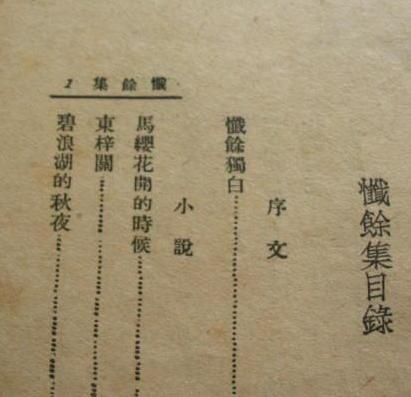 懺餘集目錄
序文
懺餘獨白
小說
馬纓花開的時候
東梓關
碧浪湖的秋夜
懺餘集 2